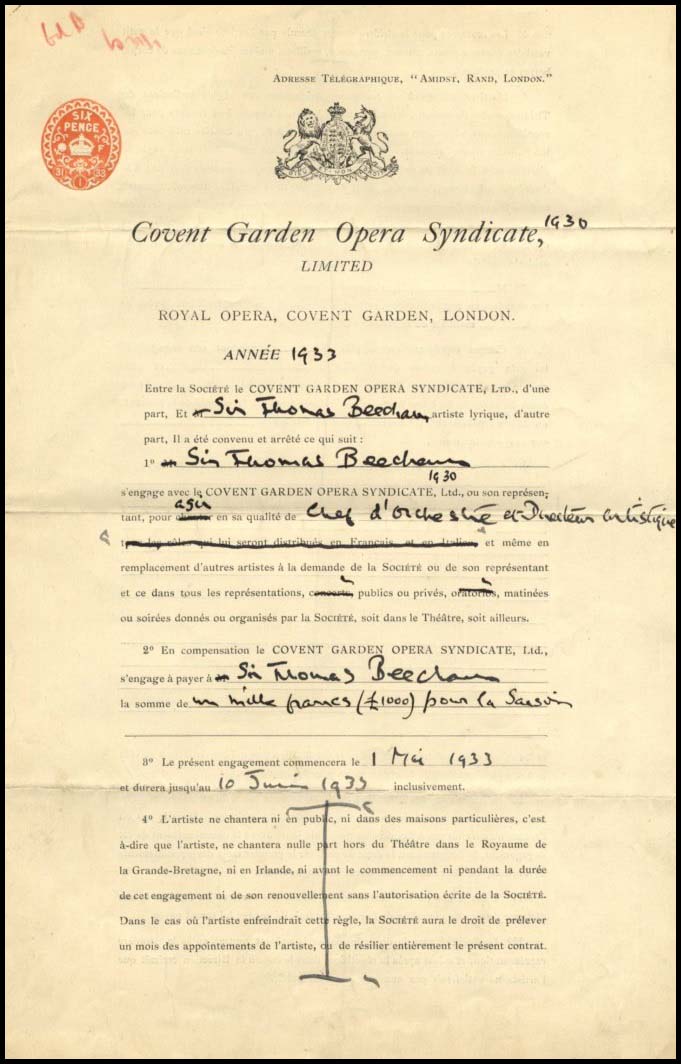 ADRESSE TÉLÉGRAPHIQUE, "AMIDST, RAND, LONDON."
SIX
PENCE
F
31 33
1
Covent Garden Opera Syndicate, 1930
LIMITED
ROYAL OPERA, COVENT GARDEN, LONDON.
ANNÉE 1933
Entre la SOCIÉTÉ le COVENT GARDEN OPERA SYNDICATE, LTD., d'une
part, Et Sir Thomas Beecham, artiste lyrique, d'autre
part, Il a été convenu et arrêté ce qui suit :
1º Sir Thomas Beecham
1930
s'engage avec le COVENT GARDEN OPERA SYNDICATE, Ltd., ou son représen-
agir
tant, pour chanter en sa qualité de Chef d'Orchestre et Directeur Artistique
tous les rôles qui lui seront distribués en Français et en Italien, et même en
remplacement d'autres artistes à la demande de la SOCIÉTÉ ou de son représentant
et ce dans tous les représentations, concerts, publics ou privés, oratorios, matinées
ou soirées donnés ou organisés par la SOCIÉTÉ, soit dans le Théâtre, soit ailleurs.
2º En compensation le COVENT GARDEN OPERA SYNDICATE, Ltd.,
s'engage à payer à Sir Thomas Beecham
la somme de un mille francs (£1000) pour la Saison
3º Le présent engagement commencera le 1 Mai 1933
et durera jusqu'au 10 Juin 1933 inclusivement.
4º L'artiste ne chantera ni en public, ni dans des maisons particulières, c'est
à-dire que l'artiste, ne chantera nulle part hors du Théâtre dans le Royaume de
la Grande-Bretagne, ni en Irlande, ni avant le commencement ni pendant la durée
de cet engagement ni de son renouvellement sans l'autorisation écrite de la SOCIÉTÉ.
Dans le cas où l'artiste enfreindrait cette règle, la SOCIÉTÉ aura le droit de prélever
un mois des appointements de l'artiste, ou de résilier entièrement le présent contrat.